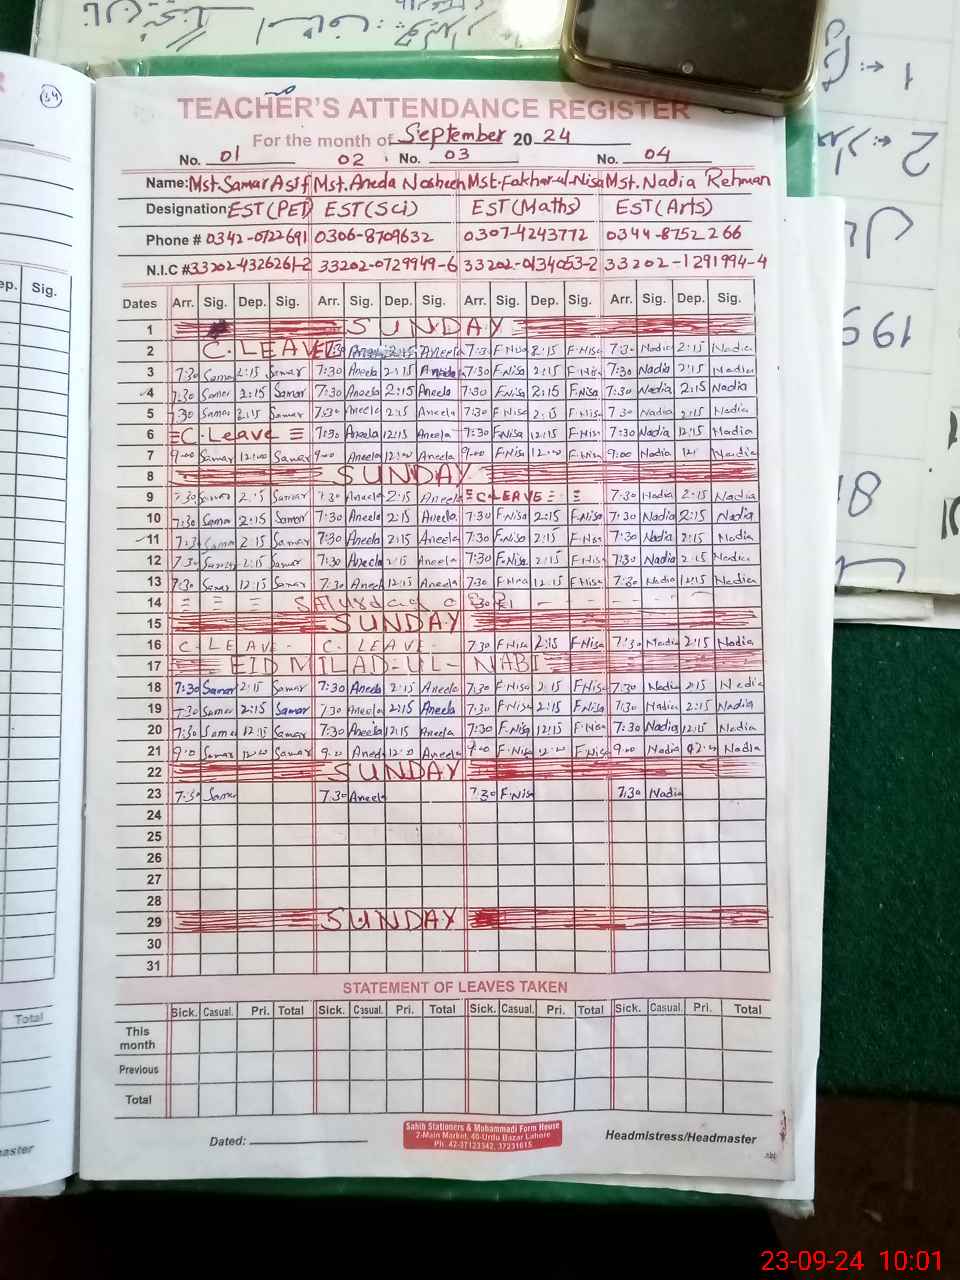 34
TEACHER'S ATTENDANCE REGISTER
For the month of September 20 24
No. 01 02 No. 03 No. 04
Name: Mst. Samar Asif Mst. Aneela Nosheen Mst. Fakhar-ul-Nisa Mst. Nadia Rehman
Designation: EST (PET) EST (Sci) EST (Maths) EST (Arts)
Phone # 0342-0722691 0306-8709632 0307-4243772 0344-8752266
N.I.C # 33202-4326261-2 33202-0729949-6 33202-0134053-2 33202-1291994-4
Dates Arr. Sig. Dep. Sig. Arr. Sig. Dep. Sig. Arr. Sig. Dep. Sig. Arr. Sig. Dep. Sig.
1 SUNDAY
2 C. LEAVE 7:30 2:15 Aneela 7:30 F.Nisa 2:15 F.Nisa 7:30 Nadia 2:15 Nadia
3 7:30 Samar 2:15 Samar 7:30 Aneela 2:15 Aneela 7:30 F.Nisa 2:15 F.Nisa 7:30 Nadia 2:15 Nadia
4 7:30 Samar 2:15 Samar 7:30 Aneela 2:15 Aneela 7:30 F.Nisa 2:15 F.Nisa 7:30 Nadia 2:15 Nadia
5 7:30 Samar 2:15 Samar 7:30 Aneela 2:15 Aneela 7:30 F.Nisa 2:15 F.Nisa 7:30 Nadia 2:15 Nadia
6 C. Leave 7:30 Aneela 12:15 Aneela 7:30 F.Nisa 12:15 F.Nisa 7:30 Nadia 12:15 Nadia
7 9:00 Samar 12:00 Samar 9:00 Aneela 12:00 Aneela 9:00 F.Nisa 12:00 F.Nisa 9:00 Nadia Nadia
8 SUNDAY
9 7:30 Samar 2:15 Samar 7:30 Aneela 2:15 Aneela C. LEAVE 7:30 Nadia 2:15 Nadia
10 7:30 Samar 2:15 Samar 7:30 Aneela 2:15 Aneela 7:30 F.Nisa 2:15 F.Nisa 7:30 Nadia 2:15 Nadia
11 7:30 Samar 2:15 Samar 7:30 Aneela 2:15 Aneela 7:30 F.Nisa 2:15 F.Nisa 7:30 Nadia 2:15 Nadia
12 7:30 Samar 2:15 Samar 7:30 Aneela 2:15 Aneela 7:30 F.Nisa 2:15 F.Nisa 7:30 Nadia 2:15 Nadia
13 7:30 Samar 12:15 Samar 7:30 Aneela 12:15 Aneela 7:30 F.Nisa 12:15 F.Nisa 7:30 Nadia 12:15 Nadia
14 Saturday
15 SUNDAY
16 C. LEAVE C. LEAVE 7:30 F.Nisa 2:15 F.Nisa 7:30 Nadia 2:15 Nadia
17 EID MILAD-UL-NABI
18 7:30 Samar 2:15 Samar 7:30 Aneela 2:15 Aneela 7:30 F.Nisa 2:15 F.Nisa 7:30 Nadia 2:15 Nadia
19 7:30 Samar 2:15 Samar 7:30 Aneela 2:15 Aneela 7:30 F.Nisa 2:15 F.Nisa 7:30 Nadia 2:15 Nadia
20 7:30 Samar 12:15 Samar 7:30 Aneela 12:15 Aneela 7:30 F.Nisa 12:15 F.Nisa 7:30 Nadia 12:15 Nadia
21 9:00 Samar 12:00 Samar 9:00 Aneela 12:00 Aneela 9:00 F.Nisa 12:00 F.Nisa 9:00 Nadia Nadia
22 SUNDAY
23 7:30 Samar 7:30 Aneela 7:30 F.Nisa 7:30 Nadia
24
25
26
27
28
29 SUNDAY
30
31
STATEMENT OF LEAVES TAKEN
Sick. Casual. Pri. Total Sick. Casual. Pri. Total Sick. Casual. Pri. Total Sick. Casual. Pri. Total
This month
Previous
Total
Dated:
Sahib Stationers & Mohammadi Form House
2-Main Market, 40-Urdu Bazar Lahore
Ph. 42-37123342, 37231615
Headmistress/Headmaster
ep. Sig.
Total
aster
1
2
199
81
23-09-24 10:01